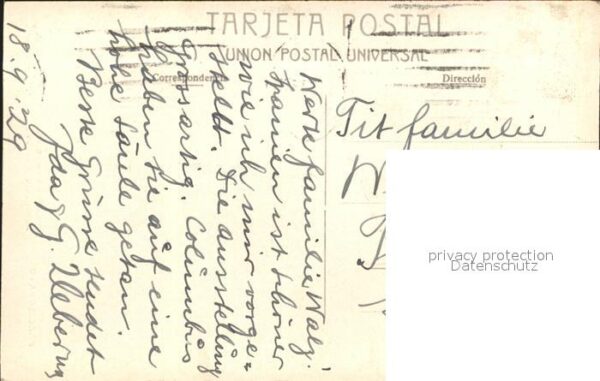 TARJETA POSTAL
UNION POSTAL UNIVERSAL
Correspondencia
Dirección
18.9.29
Werte familie Walz!
Spanien ist schöner
wie ich mir vorge=
stellt. Die ausstellung
Grossartig. Columbus
haben sie auf eine
hohe Säule getan.
Beste Grüsse sendet
Ida & G.
Tit familie
W
privacy protection
Datenschutz